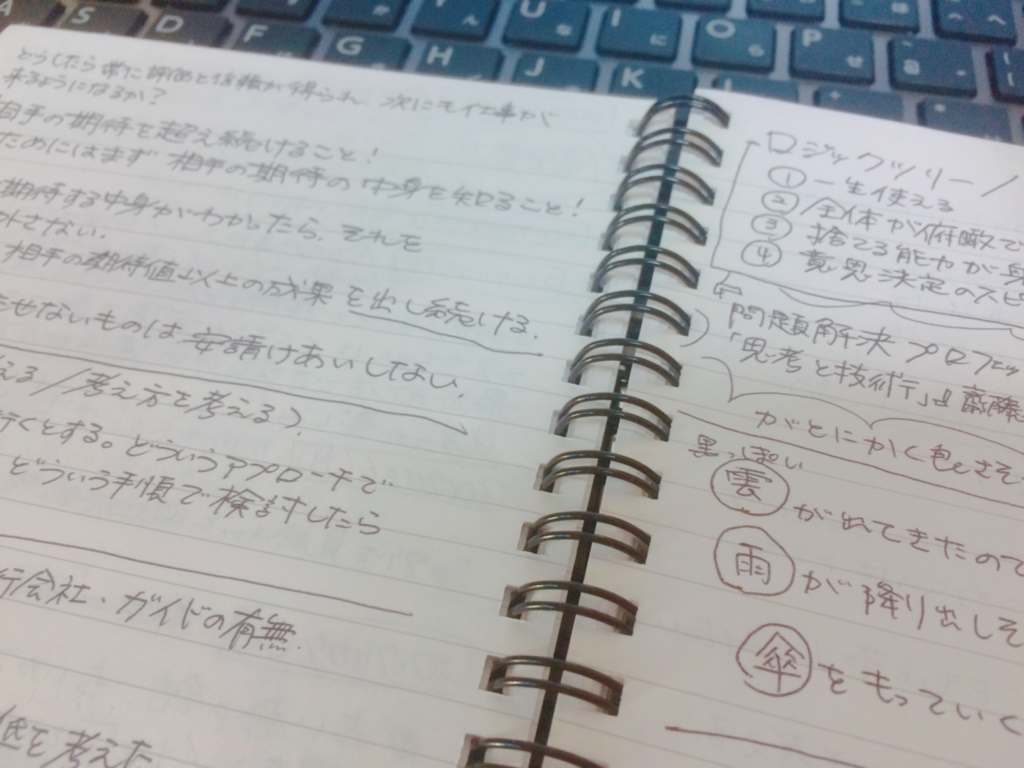 A
S
D
F
G
H
Y
U
J
I
K
O
P
ん
な
に
ら
せ
どうしたら常に評価と信頼が得られ、次にも仕事が
来るようになるか?
相手の期待を超え続けること!
ためにはまず相手の期待の中身を知ること!
期待する中身がわかったら、それを
外さない.
相手の期待値以上の成果を出し続ける.
せないものは安請けあいしない.
える/考え方を考える)
行くとする。どういうアプローチで
どういう手順で検討したら
行会社・ガイドの有無.
を考えた
ロジックツリー/
① 一生使える
② 全体が俯瞰で
③ 捨てる能力が
④ 意思決定のスピ
問題解決プロフェッ
「思考と技術」齋藤
がとにかく
黒っぽい
雲が出てきたので
雨が降り出しそ
傘をもっていく